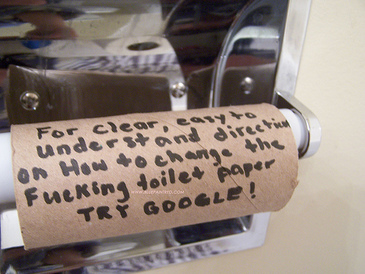 For clear, easy to
understand direction
on How to change the
Fucking toilet paper
TRY GOOGLE!